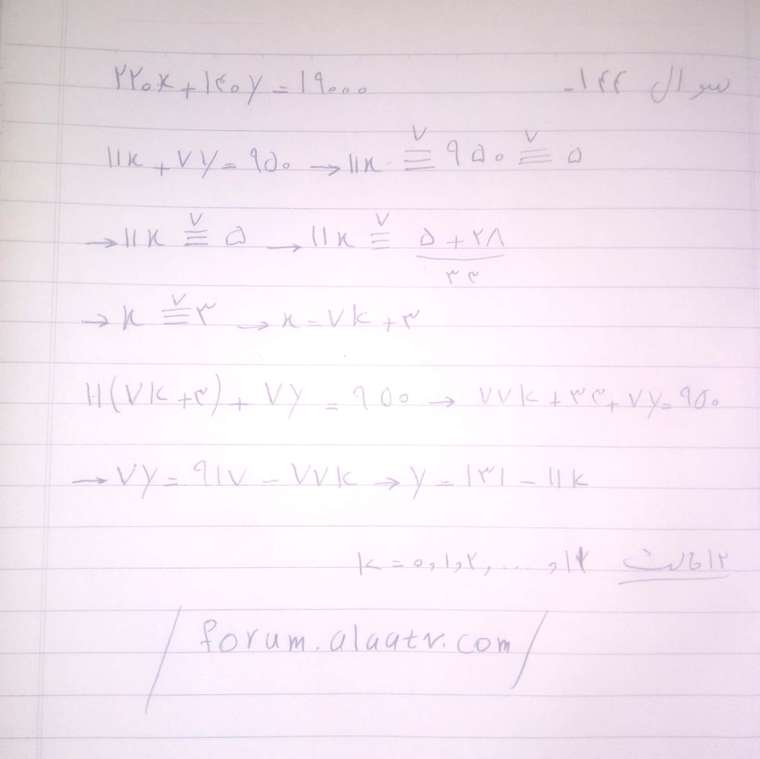 سوال ۱۴۴-
۲۲۰x + ۱۴۰y = ۱۹۰۰۰
۱۱x + ۷y = ۹۵۰ → ۱۱x ≡ ۹۵۰ ≡ ۵ (۷) (۷)
→ ۱۱x ≡ ۵ (۷) → ۱۱x ≡ ۵ + ۲۸ (۷)
۳۳
→ x ≡ ۳ (۷) → x = ۷k + ۳
۱۱(۷k + ۳) + ۷y = ۹۵۰ → ۷۷k + ۳۳ + ۷y = ۹۵۰
→ ۷y = ۹۱۷ − ۷۷k → y = ۱۳۱ − ۱۱k
k = ۰, ۱, ۲, ..., ۱۱ ۱۲ حالت
/ forum.alaatv.com /